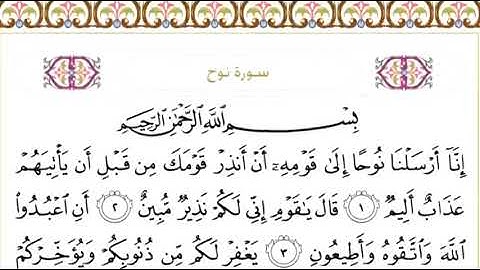 سورة نوح
بِسْمِ ٱللَّهِ ٱلرَّحْمَٰنِ ٱلرَّحِيمِ
إِنَّآ أَرْسَلْنَا نُوحًا إِلَىٰ قَوْمِهِۦٓ أَنْ أَنذِرْ قَوْمَكَ مِن قَبْلِ أَن يَأْتِيَهُمْ
عَذَابٌ أَلِيمٌ ١ قَالَ يَٰقَوْمِ إِنِّى لَكُمْ نَذِيرٌ مُّبِينٌ ٢ أَنِ ٱعْبُدُوا۟
ٱللَّهَ وَٱتَّقُوهُ وَأَطِيعُونِ ٣ يَغْفِرْ لَكُم مِّن ذُنُوبِكُمْ وَيُؤَخِّرْكُمْ